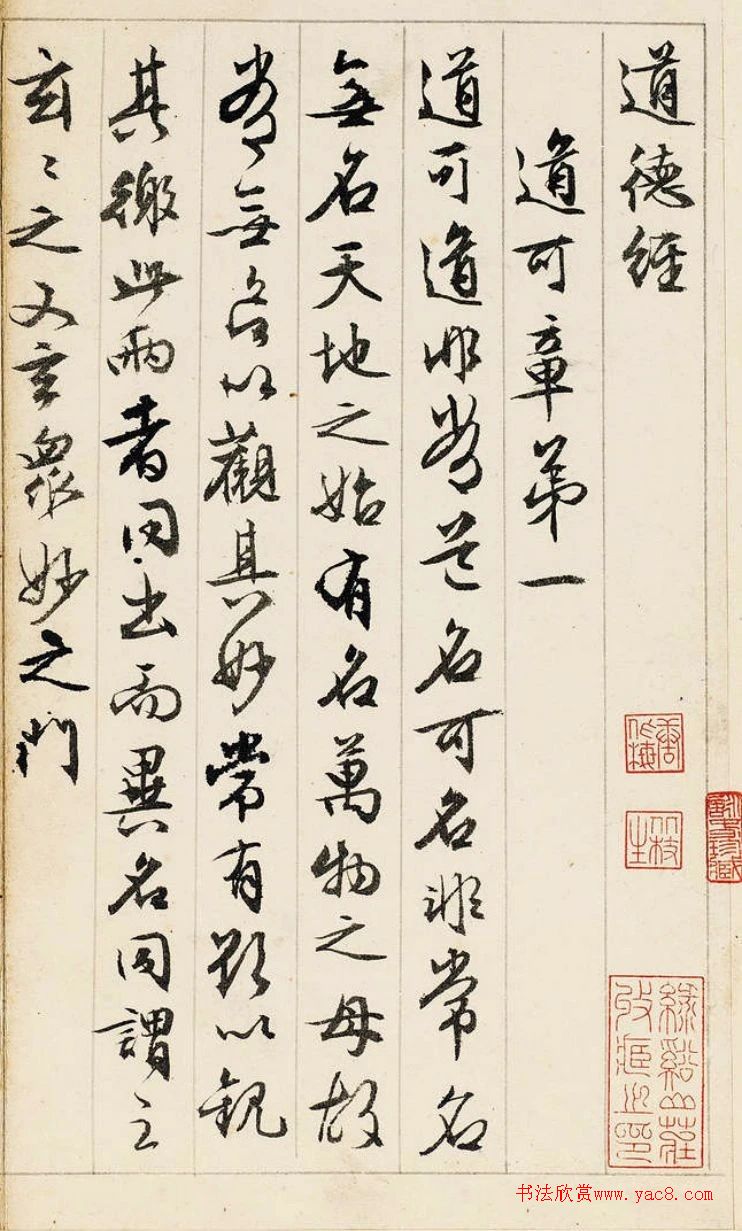 道德經
道可章第一
道可道非常道名可名非常名
無名天地之始有名萬物之母故
常無欲以觀其妙常有欲以觀
其徼此兩者同出而異名同謂之
玄〻之又玄眾妙之門
书法欣赏www.yac8.com